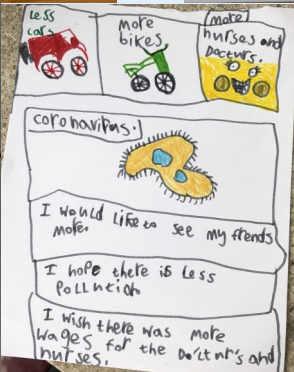 Less
cars
more
bikes
more
nurses and
Docturs.
coronavirus.
I would like to see my friends
more.
I hope there is Less
Pollution
I wish there was more
wages for the Docturs and
nurses.